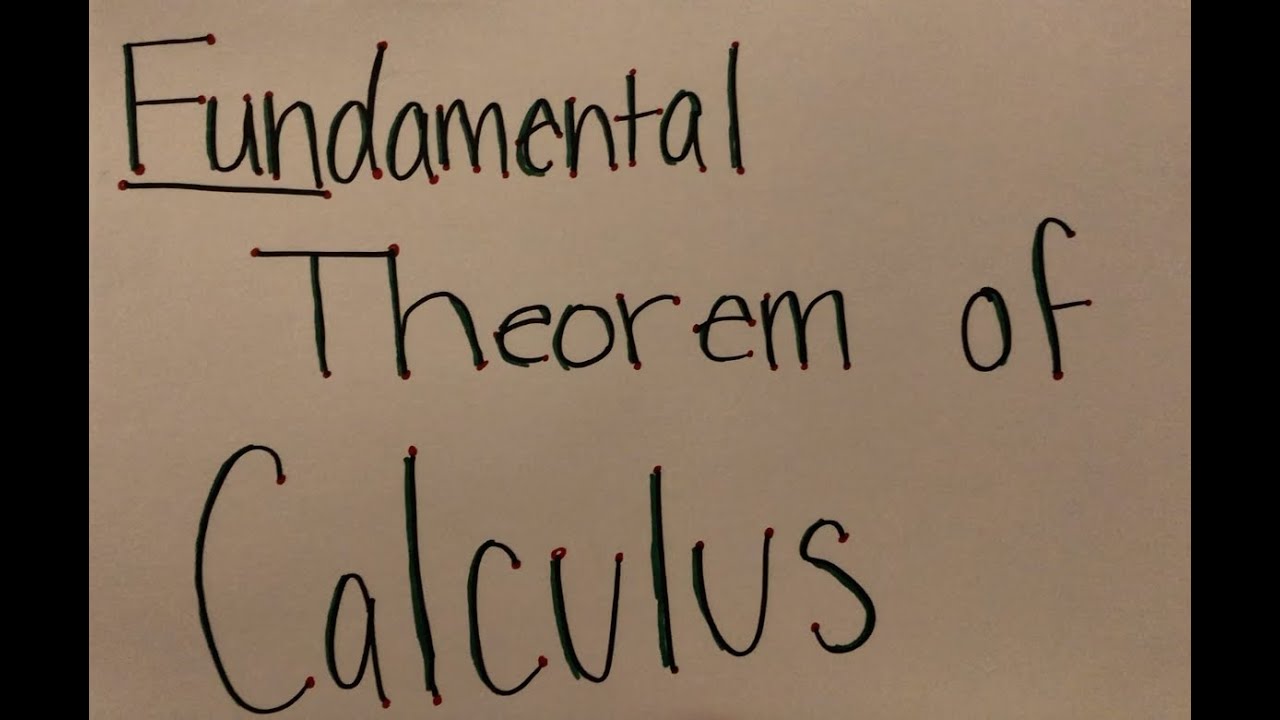 Fundamental
Theorem of
Calculus